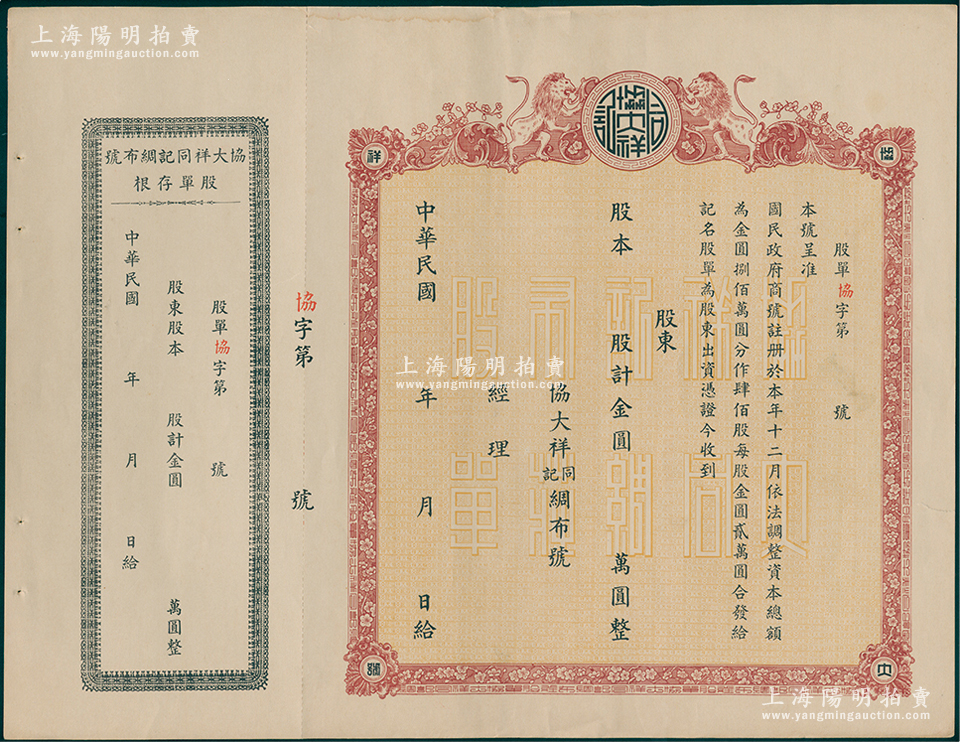 上海陽明拍賣
www.yangmingauction.com
協大祥同記
協
祥
大
股單協字第　號
本號呈准
國民政府商號註册於本年十二月依法調整資本總額
為金圓捌佰萬圓分作肆佰股每股金圓貳萬圓合發給
記名股單為股東出資憑證今收到
股東
股本　股計金圓　萬圓整
協大祥同記綢布號
經理
中華民國　年　月　日給
協字第　號
號布綢記同祥大協
根存單股
股單協字第　號
股東股本　股計金圓　萬圓整
中華民國　年　月　日給
上海陽明拍賣
www.yangmingauction.com
上海陽明拍賣
www.yangmingauction.com